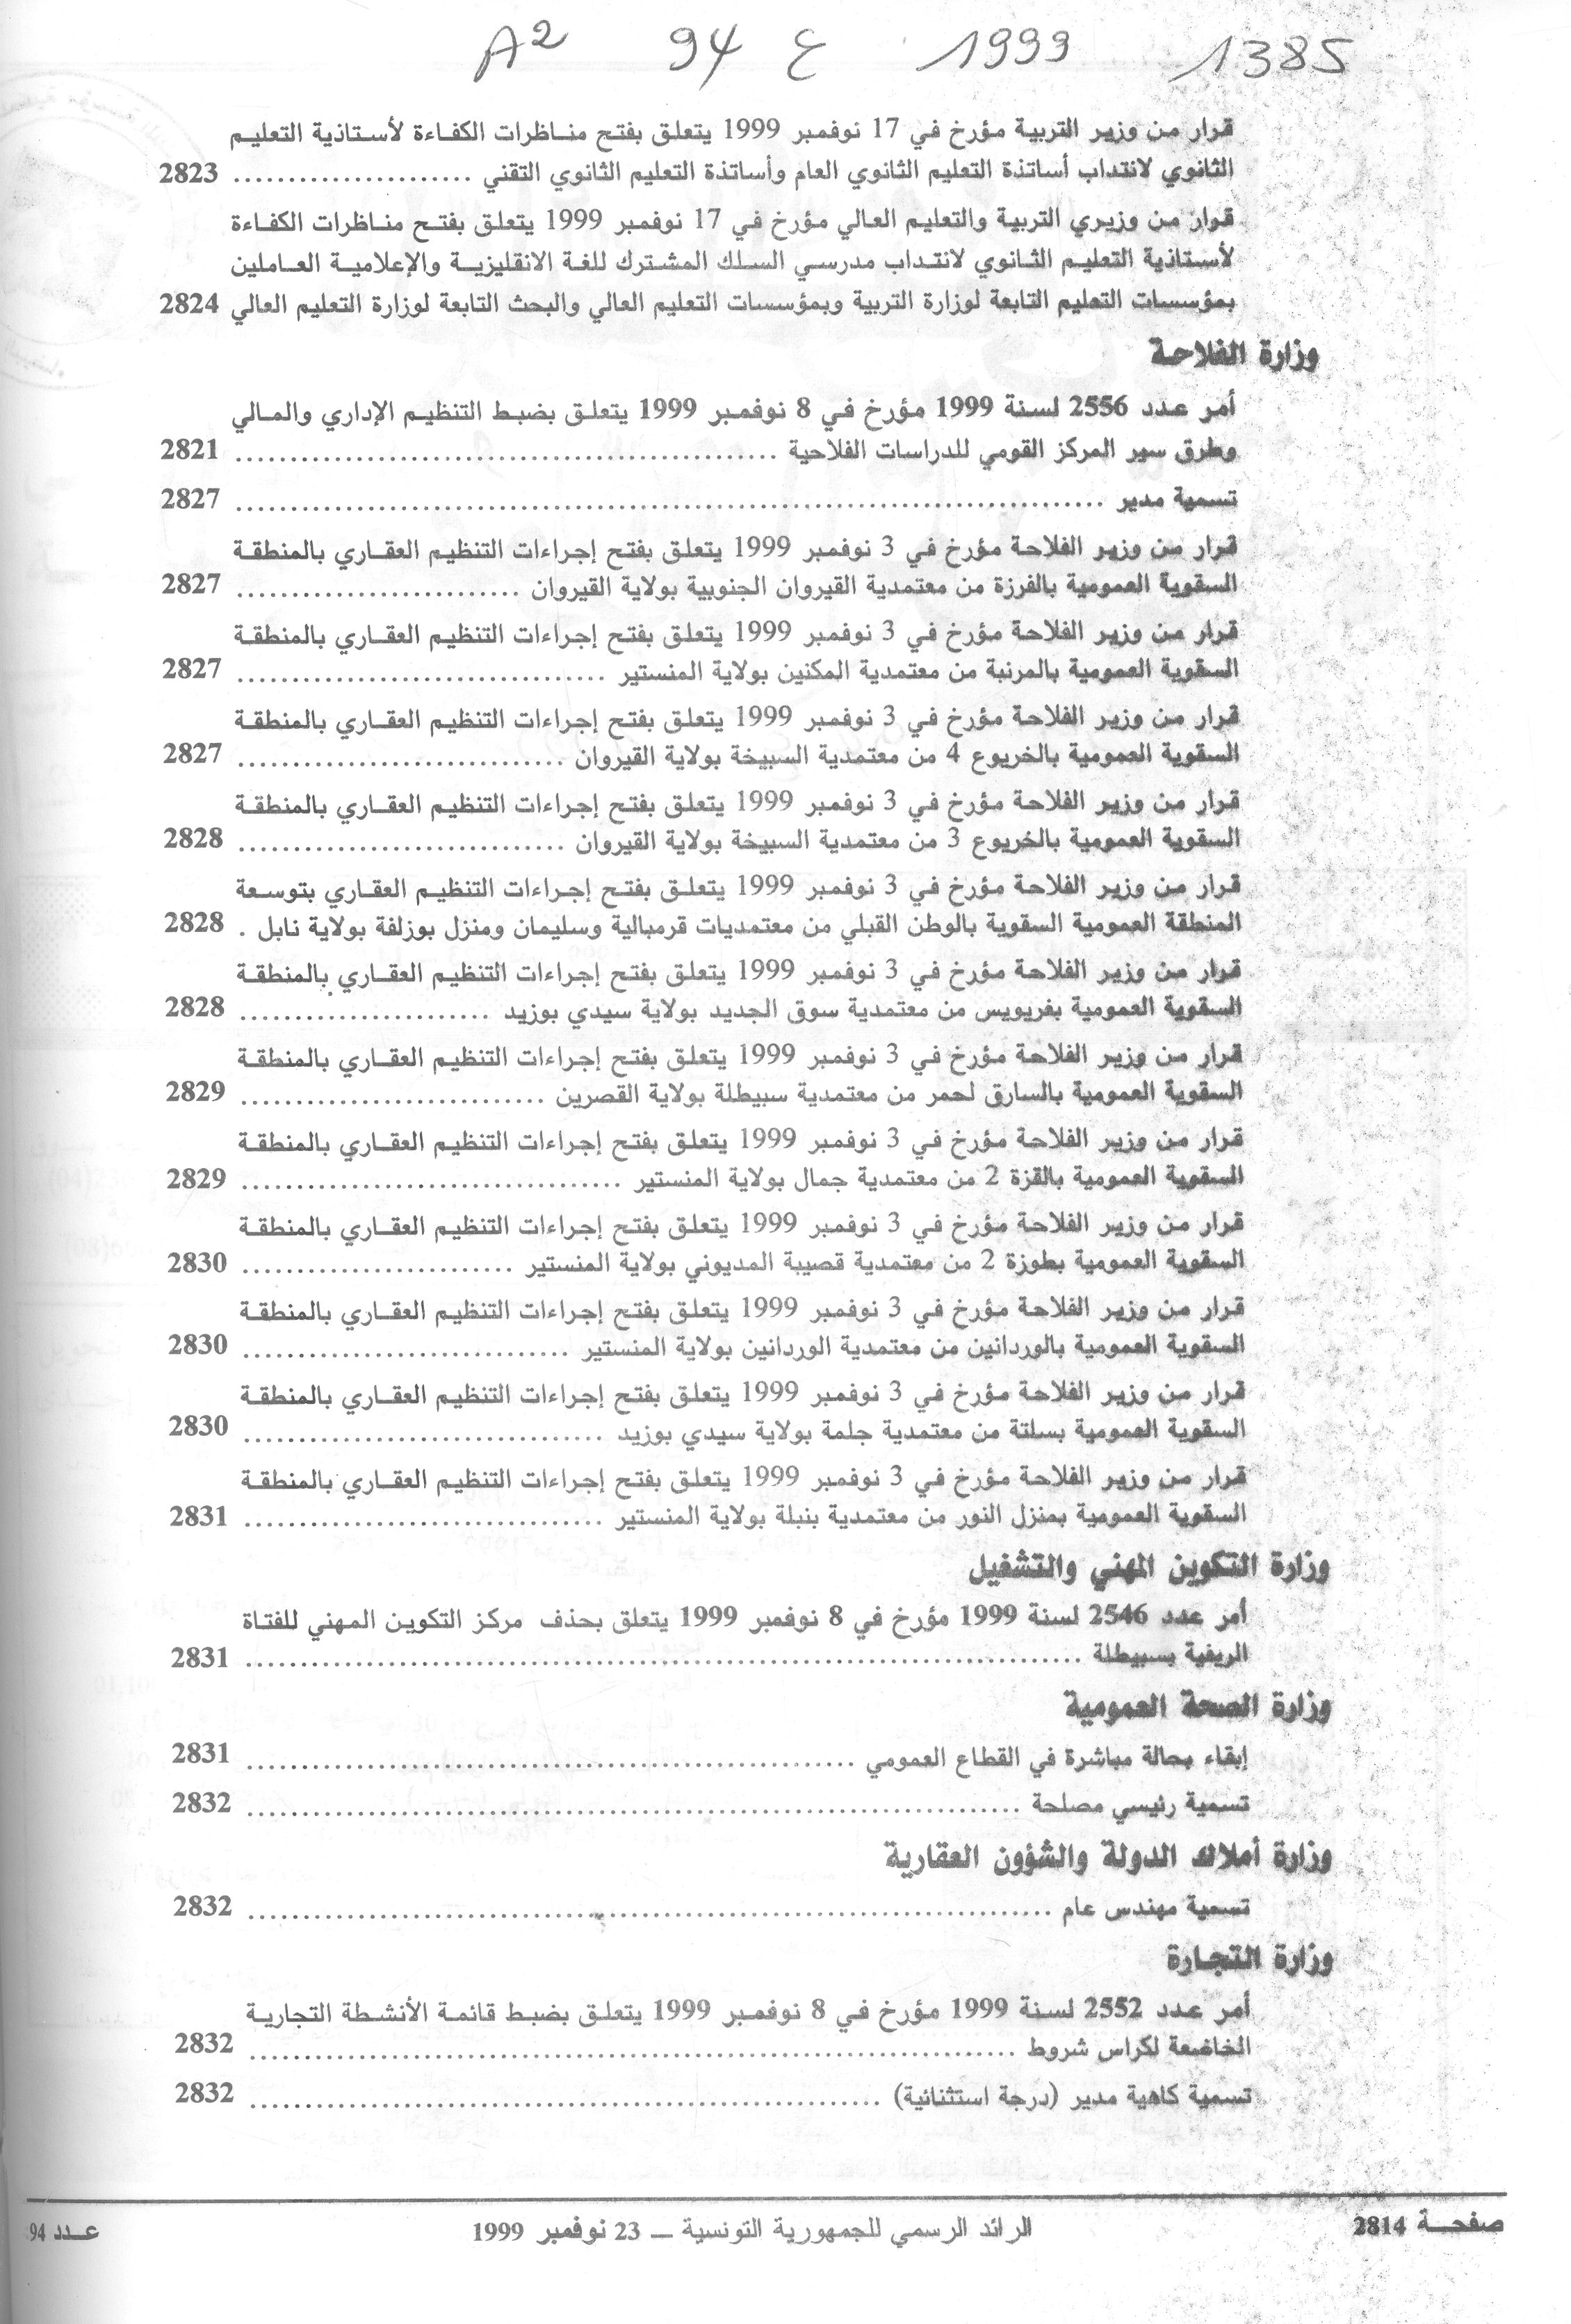 A2 94 ع 1999 1385
قرار من وزير التربية مؤرخ في 17 نوفمبر 1999 يتعلق بفتح مناظرات الكفاءة لأستاذية التعليم
الثانوي لانتداب أساتذة التعليم الثانوي العام وأساتذة التعليم الثانوي التقني ..................... 2823
قرار من وزيري التربية والتعليم العالي مؤرخ في 17 نوفمبر 1999 يتعلق بفتح مناظرات الكفاءة
لأستاذية التعليم الثانوي لانتداب مدرسي السلك المشترك للغة الانقليزية والإعلامية العاملين
بمؤسسات التعليم التابعة لوزارة التربية وبمؤسسات التعليم العالي والبحث التابعة لوزارة التعليم العالي 2824
وزارة الفلاحة
أمر عدد 2556 لسنة 1999 مؤرخ في 8 نوفمبر 1999 يتعلق بضبط التنظيم الإداري والمالي
وطرق سير المركز القومي للدراسات الفلاحية ..................... 2821
تسمية مدير ..................... 2827
قرار من وزير الفلاحة مؤرخ في 3 نوفمبر 1999 يتعلق بفتح إجراءات التنظيم العقاري بالمنطقة
السقوية العمومية بالفرزة من معتمدية القيروان الجنوبية بولاية القيروان ..................... 2827
قرار من وزير الفلاحة مؤرخ في 3 نوفمبر 1999 يتعلق بفتح إجراءات التنظيم العقاري بالمنطقة
السقوية العمومية بالمرنبة من معتمدية المكنين بولاية المنستير ..................... 2827
قرار من وزير الفلاحة مؤرخ في 3 نوفمبر 1999 يتعلق بفتح إجراءات التنظيم العقاري بالمنطقة
السقوية العمومية بالخريوع 4 من معتمدية السبيخة بولاية القيروان ..................... 2827
قرار من وزير الفلاحة مؤرخ في 3 نوفمبر 1999 يتعلق بفتح إجراءات التنظيم العقاري بالمنطقة
السقوية العمومية بالخريوع 3 من معتمدية السبيخة بولاية القيروان ..................... 2828
قرار من وزير الفلاحة مؤرخ في 3 نوفمبر 1999 يتعلق بفتح إجراءات التنظيم العقاري بتوسعة
المنطقة العمومية السقوية بالوطن القبلي من معتمديات قرمبالية وسليمان ومنزل بوزلفة بولاية نابل . 2828
قرار من وزير الفلاحة مؤرخ في 3 نوفمبر 1999 يتعلق بفتح إجراءات التنظيم العقاري بالمنطقة
السقوية العمومية بفريويس من معتمدية سوق الجديد بولاية سيدي بوزيد ..................... 2828
قرار من وزير الفلاحة مؤرخ في 3 نوفمبر 1999 يتعلق بفتح إجراءات التنظيم العقاري بالمنطقة
السقوية العمومية بالسارق لحمر من معتمدية سبيطلة بولاية القصرين ..................... 2829
قرار من وزير الفلاحة مؤرخ في 3 نوفمبر 1999 يتعلق بفتح إجراءات التنظيم العقاري بالمنطقة
السقوية العمومية بالقزة 2 من معتمدية جمال بولاية المنستير ..................... 2829
قرار من وزير الفلاحة مؤرخ في 3 نوفمبر 1999 يتعلق بفتح إجراءات التنظيم العقاري بالمنطقة
السقوية العمومية بطوزة 2 من معتمدية قصيبة المديوني بولاية المنستير ..................... 2830
قرار من وزير الفلاحة مؤرخ في 3 نوفمبر 1999 يتعلق بفتح إجراءات التنظيم العقاري بالمنطقة
السقوية العمومية بالوردانين من معتمدية الوردانين بولاية المنستير ..................... 2830
قرار من وزير الفلاحة مؤرخ في 3 نوفمبر 1999 يتعلق بفتح إجراءات التنظيم العقاري بالمنطقة
السقوية العمومية بسلتة من معتمدية جلمة بولاية سيدي بوزيد ..................... 2830
قرار من وزير الفلاحة مؤرخ في 3 نوفمبر 1999 يتعلق بفتح إجراءات التنظيم العقاري بالمنطقة
السقوية العمومية بمنزل النور من معتمدية بنبلة بولاية المنستير ..................... 2831
وزارة التكوين المهني والتشغيل
أمر عدد 2546 لسنة 1999 مؤرخ في 8 نوفمبر 1999 يتعلق بحذف مركز التكوين المهني للفتاة
الريفية بسبيطلة ..................... 2831
وزارة الصحة العمومية
إبقاء بحالة مباشرة في القطاع العمومي ..................... 2831
تسمية رئيسي مصلحة ..................... 2832
وزارة أملاك الدولة والشؤون العقارية
تسمية مهندس عام ..................... 2832
وزارة التجارة
أمر عدد 2552 لسنة 1999 مؤرخ في 8 نوفمبر 1999 يتعلق بضبط قائمة الأنشطة التجارية
الخاضعة لكراس شروط ..................... 2832
تسمية كاهية مدير (درجة استثنائية) ..................... 2832
صفحة 2814 الرائد الرسمي للجمهورية التونسية – 23 نوفمبر 1999 عدد 94